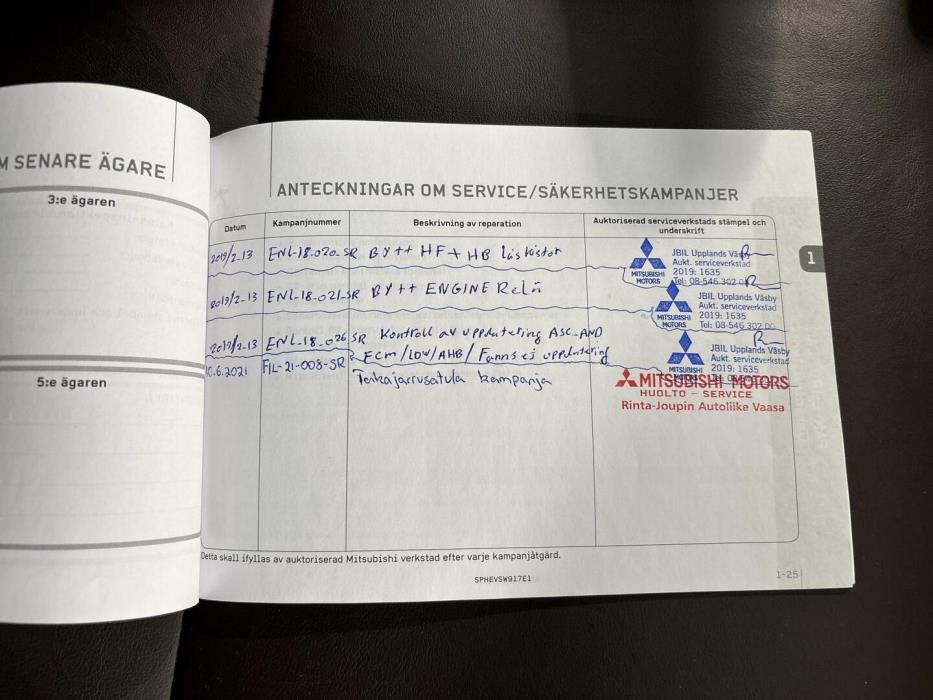 M SENARE ÄGARE
3:e ägaren
5:e ägaren
ANTECKNINGAR OM SERVICE/SÄKERHETSKAMPANJER
Datum Kampanjnummer Beskrivning av reparation Auktoriserad serviceverkstads stämpel och
underskrift
2019/2-13 ENL-18-020-SR BYtt HF + HB låskistor
MITSUBISHI
MOTORS
JBIL Upplands Väsby
Aukt. serviceverkstad
2019: 1635
Tel: 08-546 302 00
2019/2-13 ENL-18-021-SR BYtt ENGINE Relä
MITSUBISHI
MOTORS
JBIL Upplands Väsby
Aukt. serviceverkstad
2019: 1635
Tel: 08-546 302 00
2019/2-13 ENL-18-026 SR Kontroll av uppdatering ASC-AND
Fcm/LDW/AHB/Fanns ej uppdatering
MITSUBISHI
MOTORS
JBIL Upplands Väsby
Aukt. serviceverkstad
2019: 1635
10.6.2021 FIL-21-008-SR Takajarrusatula kampanja
MITSUBISHI MOTORS
HUOLTO - SERVICE
Rinta-Joupin Autoliike Vaasa
1
Detta skall ifyllas av auktoriserad Mitsubishi verkstad efter varje kampanjåtgärd.
SPHEVSW917E1
1-25